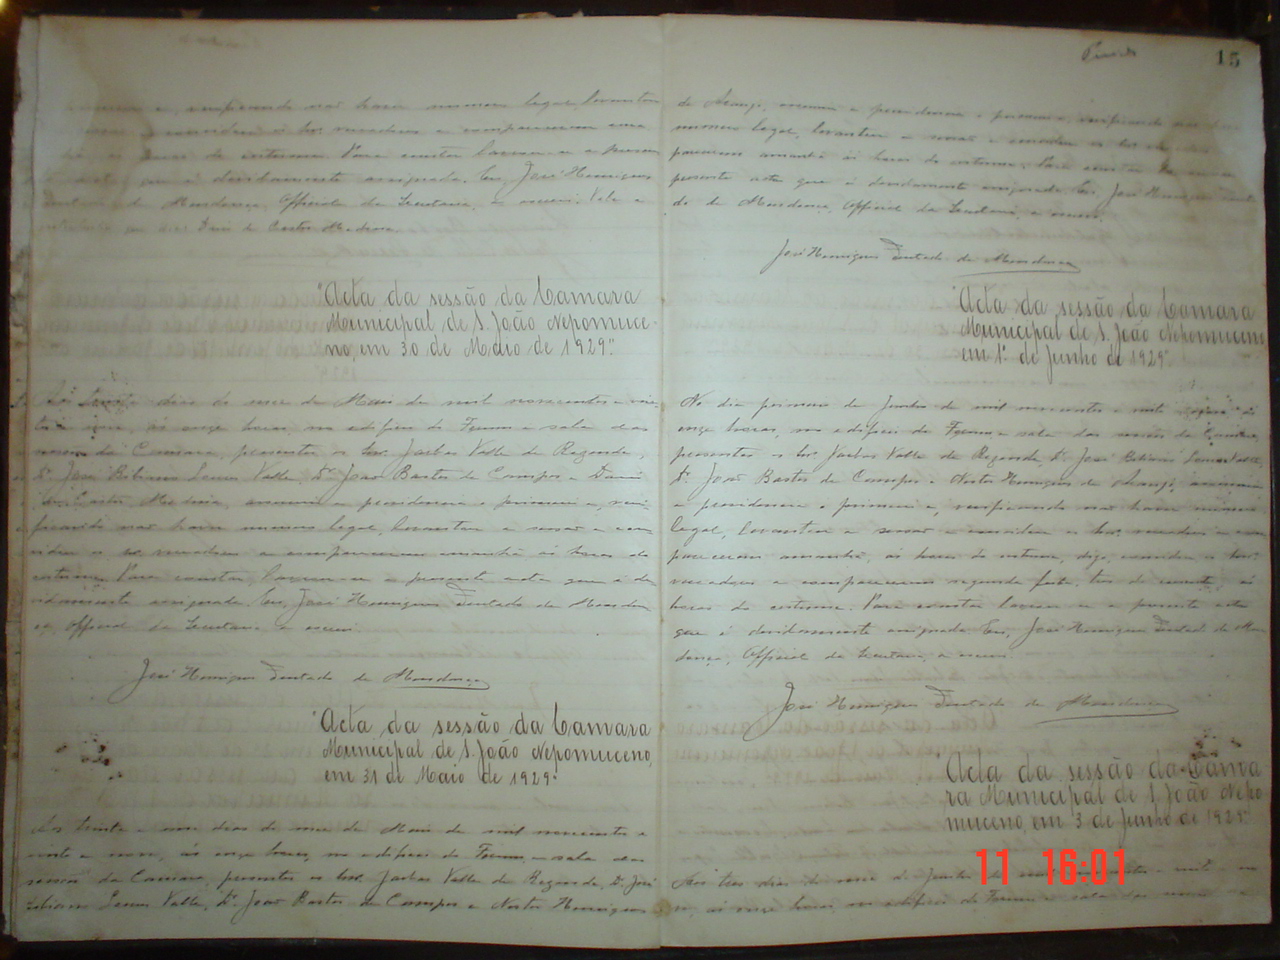 verificando não haver numero legal, levantou
convidou os Srs. vereadores a comparecerem
horas do costume. Para constar lavrou-se a presente
que é devidamente assignada. Eu, José Henriques
Furtado de Mendonça, Official da Secretaria, a escrevi.
"Acta da sessão da Camara
Municipal de S. João Nepomuce-
no, em 30 de Maio de 1929".
dias do mez de Maio de mil novecentos e vin-
te e nove, ás onze horas, no edificio do Forum e sala das
sessões da Camara, presentes os Srs. Jarbas Valle de Rezende,
Dr. José Ribeiro Lemos Valle, Dr. João Bastos de Campos e
de Castro Medina, assumiu a presidencia o primeiro e, veri-
ficando não haver numero legal, levantou a sessão e con-
vidou os Srs. vereadores a comparecerem amanhã ás horas do
costume. Para constar, lavrou-se a presente acta que é de-
vidamente assignada. Eu, José Henriques Furtado de Mendon-
ça, Official da Secretaria a escrevi.
José Henriques Furtado de Mendonça
"Acta da sessão da Camara
Municipal de S. João Nepomuceno,
em 31 de Maio de 1929".
Aos trinta e um dias do mez de Maio de mil novecentos e
vinte e nove, ás onze horas, no edificio do Forum e sala das
sessões da Camara, presentes os Srs. Jarbas Valle de Rezende, Dr. José
Ribeiro Lemos Valle, Dr. João Bastos de Campos e Nestor Henriques
15
de Araujo, assumiu a presidencia o primeiro e, verificando não haver
numero legal, levantou a sessão e convidou os Srs.
parecerem amanhã ás horas do costume. Para constar lavrou-se a
presente acta que é devidamente assignada. Eu, José Henriques Furta-
do de Mendonça, Official da Secretaria, a escrevi.
José Henriques Furtado de Mendonça
"Acta da sessão da Camara
Municipal de S. João Nepomuceno
em 1º de Junho de 1929".
No dia primeiro de Junho de mil novecentos e vinte e nove, ás
onze horas, no edificio do Forum e sala das sessões da Camara,
presentes os Srs. Jarbas Valle de Rezende, Dr. José Ribeiro Lemos Valle,
Dr. João Bastos de Campos e Nestor Henriques de Araujo, assumiu
a presidencia o primeiro e, verificando não haver numero
legal, levantou a sessão e convidou os Srs. vereadores a com-
parecerem amanhã, ás horas do costume, digo, convidou os Srs.
vereadores a comparecerem segunda feira, tres do corrente, ás
horas do costume. Para constar lavrou-se a presente acta
que é devidamente assignada. Eu, José Henriques Furtado de Men-
donça, Official da Secretaria, a escrevi.
José Henriques Furtado de Mendonça
"Acta da sessão da Cama-
ra Municipal de S. João Nepo-
muceno, em 3 de Junho de 1929".
Aos tres dias do mez de Junho de mil novecentos e vinte e no-
ve, ás onze horas, no edificio do Forum e sala das sessões da
11 16:01